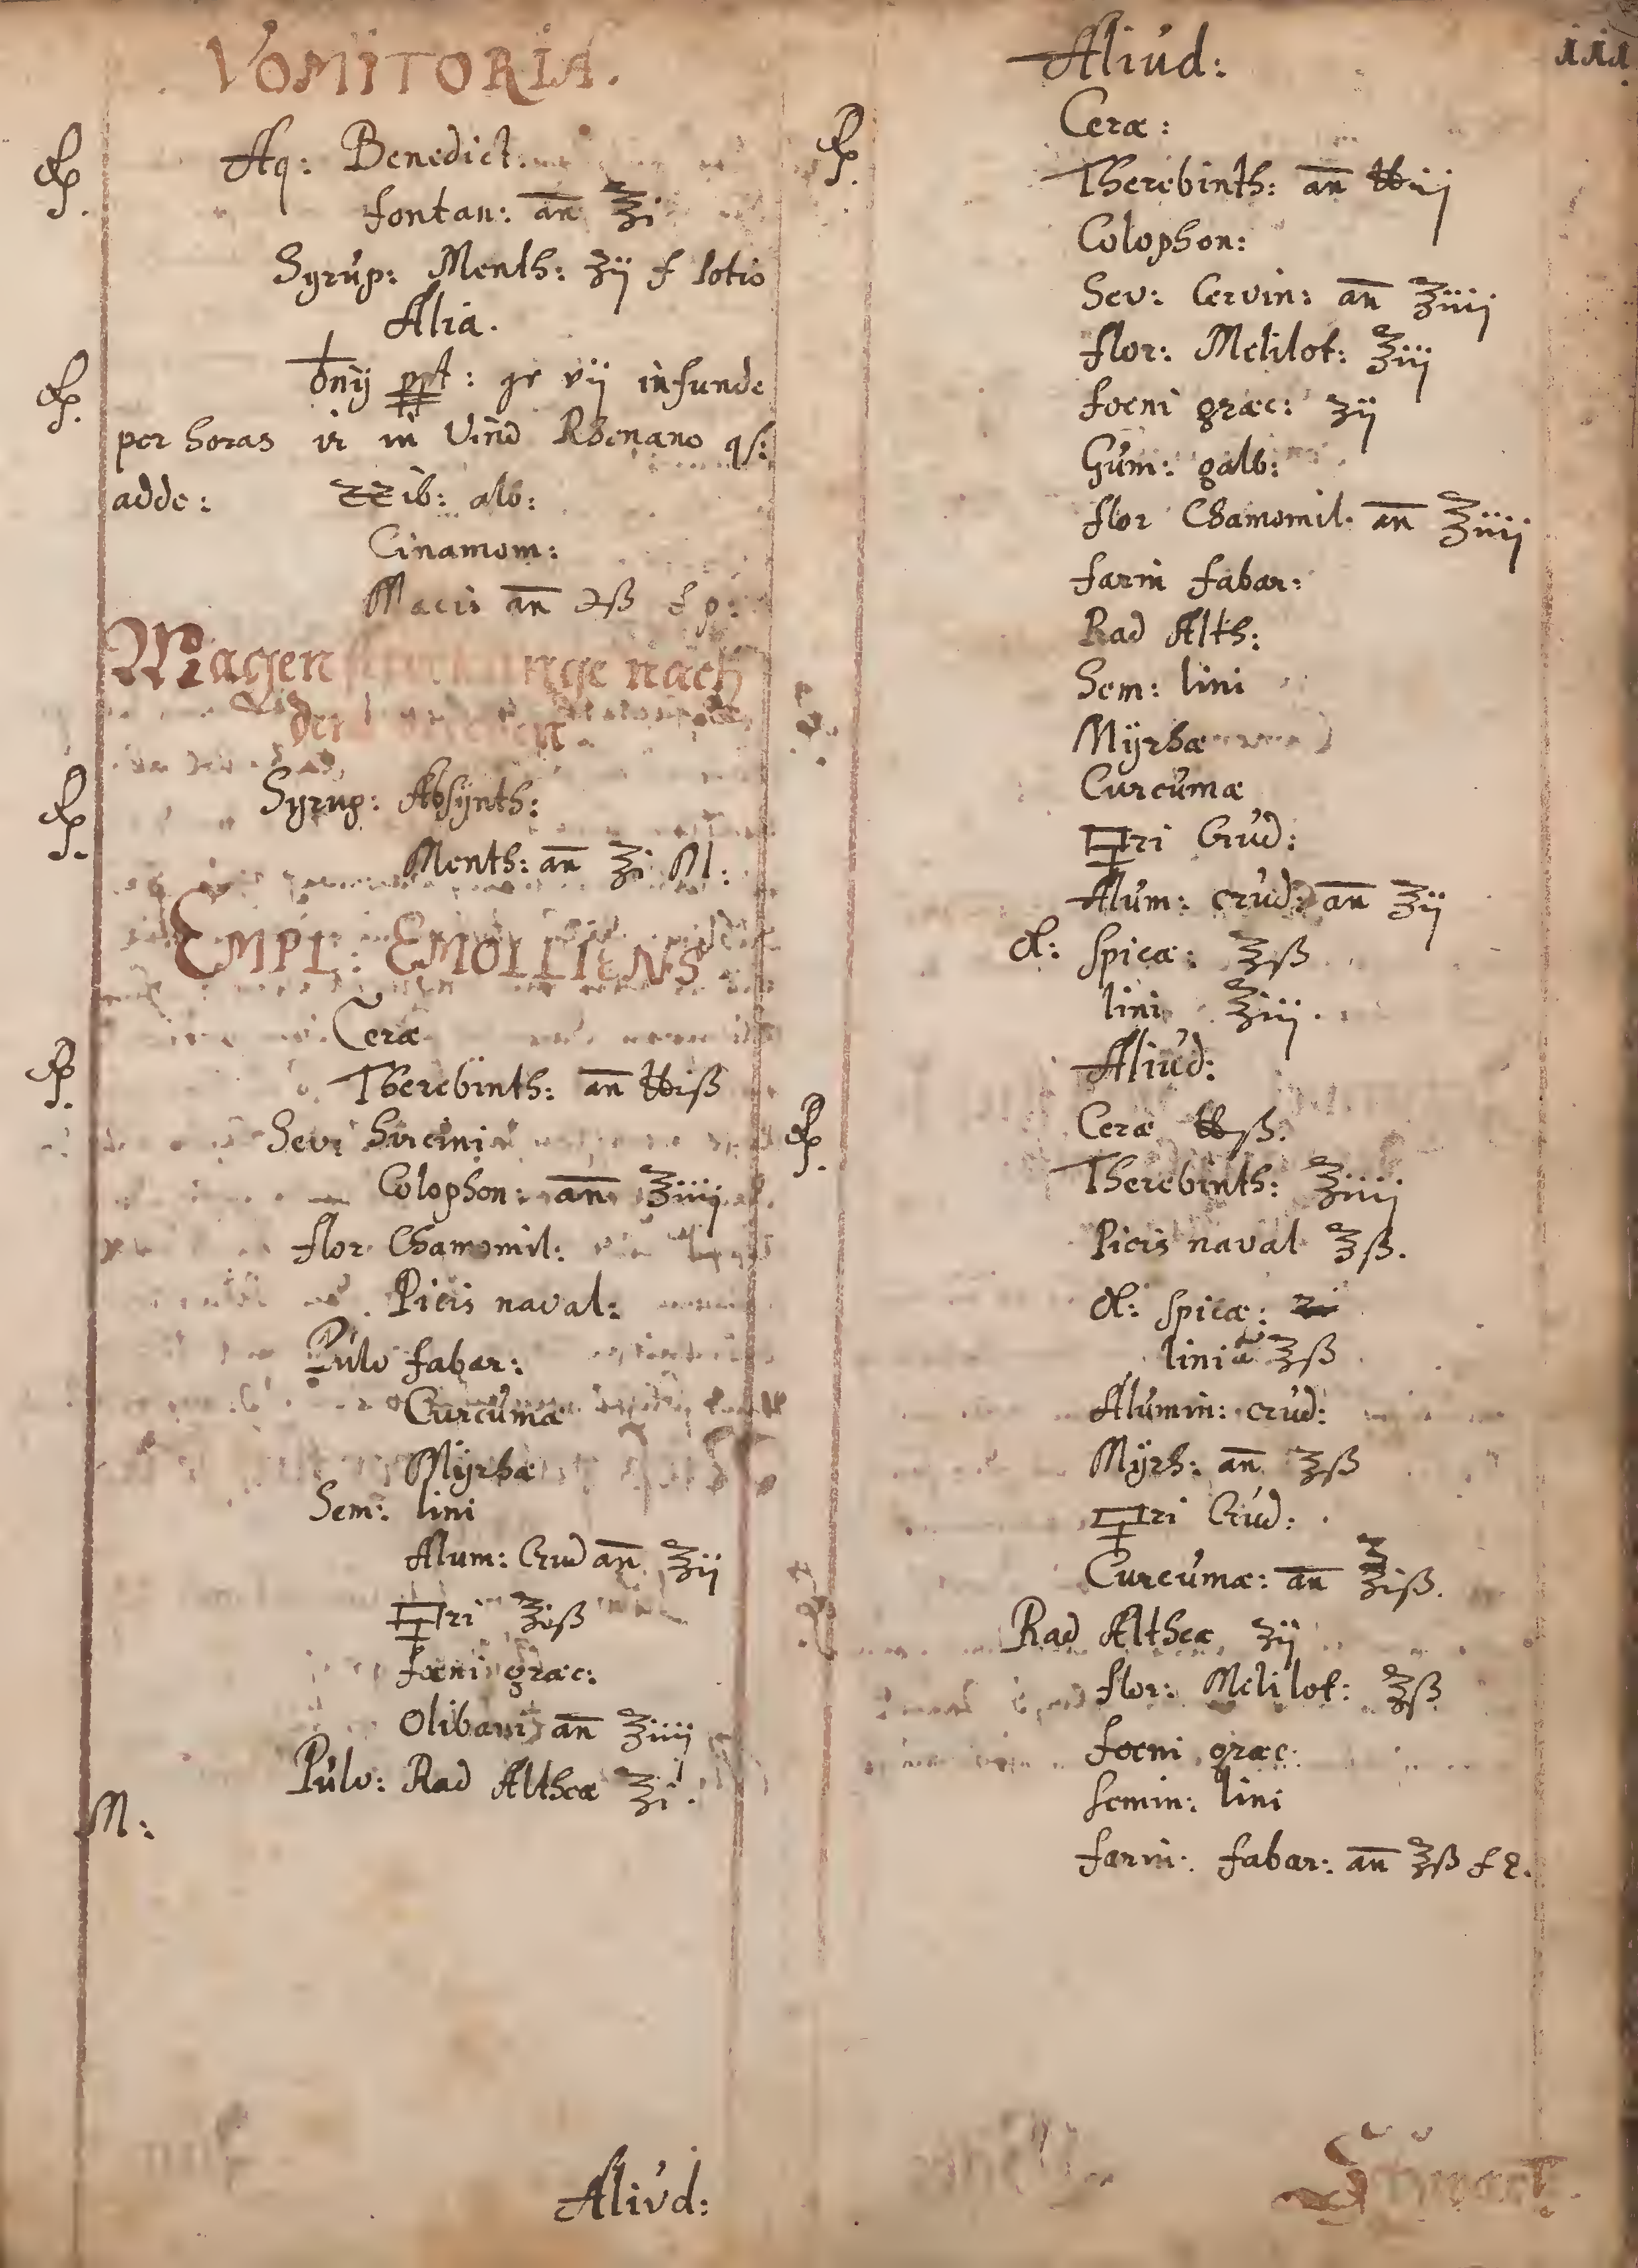 VOMITORIA.
℞. Aq: Benedict.
fontan: an ℥i
Syrup: Menth: ʒij f lotio
Alia.
℞. ♁nij ppt: gr vij infunde
per horas in Vino Rhenano qs:
adde: ZZib: alb:
Cinamom:
Macis an ℈ß f p:
Magen nge nach
der
℞. Syrup: Absÿnth:
Menth: an ℥i M:
EMPL: EMOLLIENS
Ceræ
℞. Therebinth: an ℔iß
Sevi hircini
Colophon: an ℥iiij
flor Chamomil:
Picis naval:
Pulv fabar:
Curcumæ
Mÿrhæ
Sem: lini
Alum: Crud an ℥ij
🜿ri ℥iß
fœni græc:
Olibani an ℥iiij
Pulv: Rad Altheæ ℥i.
M:
Aliud:
Aliud:
Ceræ:
℞. Therebinth: an ℔iij
Colophon:
Sev: Cervin: an ℥iiij
flor: Melilot: ℥iij
foeni græc: ʒij
Gum: galb:
flor Chamomil: an ℥iiij
farin fabar:
Rad Alth:
Sem: lini
Mÿrhæ
Curcumæ
🜿ri Crud:
Alum: crud: an ℥ij
ol: spicæ: ℥ß
lini ℥iij.
Aliud:
℞. Ceræ ℔ß.
Therebinth: ℥iiij
Picis naval ℥ß.
ol: spicæ:
lini ℥ß
Alumin: crud:
Mÿrh: an ℥ß
🜿ri Crud:
Curcumæ: an ℥iß.
Rad Altheæ ʒij
flor: Melilot: ℥ß
foeni græc:
semin: lini
farin: fabar: an ℥ß f e.